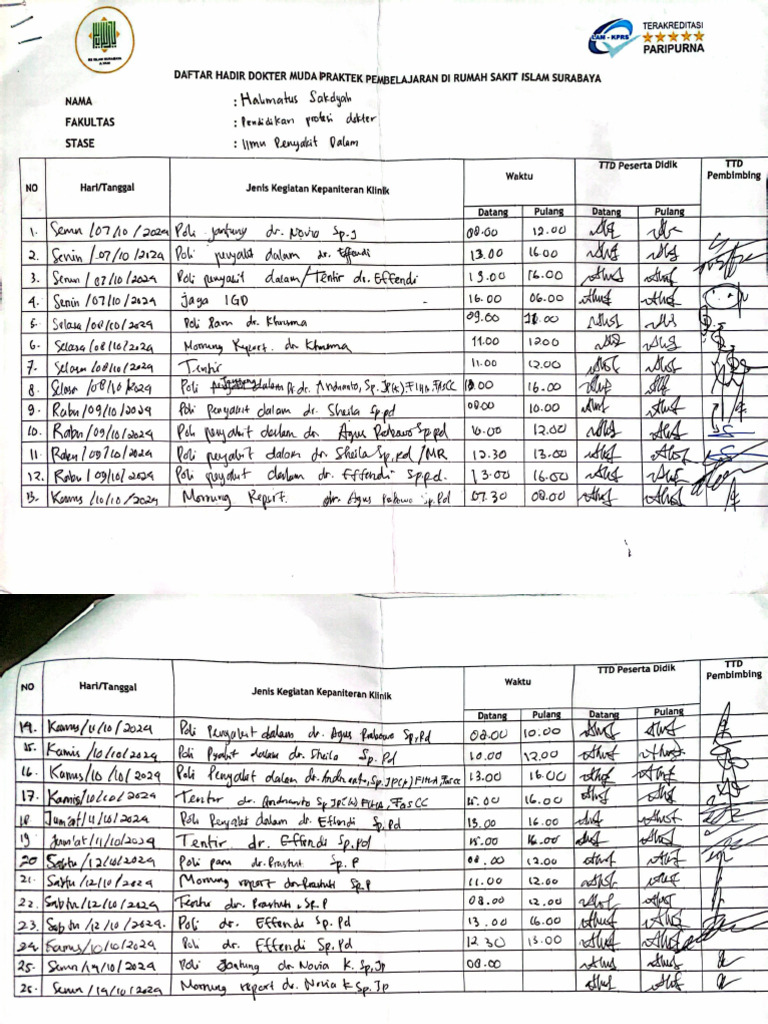 RS ISLAM SURABAYA
LAM - KPRS
TERAKREDITASI
PARIPURNA
DAFTAR HADIR DOKTER MUDA PRAKTEK PEMBELAJARAN DI RUMAH SAKIT ISLAM SURABAYA
NAMA : Halimatus Sakdyah
FAKULTAS : Pendidikan profesi dokter
STASE : Ilmu Penyakit Dalam
NO Hari/Tanggal Jenis Kegiatan Kepaniteran Klinik Waktu TTD Peserta Didik TTD Pembimbing
Datang Pulang Datang Pulang
1. Senin /07/10/2024 Poli jantung dr. Novia Sp.J 08.00 12.00
2. Senin /07/10/2124 Poli penyakit dalam dr. Effendi 13.00 16.00
3. Senin /07/10/2024 Poli penyakit dalam/Tentir dr. Effendi 15.00 16.00
4. Senin/07/10/2024 Jaga IGD 16.00 06.00
5. Selasa/08/10/2024 Poli dr. Khusuma 09.00
6. Selasa/08/10/2024 Morning Report. dr Khusuma 11.00 1200
7. Selasa/08/10/2024 Tentir 11.00 12.00
8. Selasa /08/10/2024 Poli dalam dr. Andrianto, Sp.JP(k) FIHA, FasCC 16.00
9. Rabu/09/10/2024 Poli Penyakit dalam dr. Sheila Sp.pd 08.00 10.00
10. Rabu/09/10/2024 Poli penyakit dalam dr Agus Prabowo Sp.pd 10.00 12.00
11. Rabu /09/10/2024 Poli penyakit dalam dr Sheila Sp.pd /MR 12.30 13.00
12. Rabu /09/10/2024 Poli penyakit dalam dr. Effendi Sp.pd. 13.00 16.00
13. Kamis /10/10/2024 Morning Report. dr. Agus Prabowo Sp.Pd 07.30 08.00
NO Hari/Tanggal Jenis Kegiatan Kepaniteran Klinik Waktu TTD Peserta Didik TTD Pembimbing
Datang Pulang Datang Pulang
14. Kamis/11/10/2024 Poli Penyakit dalam dr. Agus Prabowo Sp.Pd 08.00 10.00
15. Kamis /10/10/2024 Poli dalam dr. Sheila Sp. Pd 10.00 12.00
16. Kamis/10/10/2024 Poli Penyakit dalam dr. Andrianto, Sp.JP(k) FIHA FasCC 13.00 16.00
17. Kamis/10/10/2024 Tentir dr. Andrianto Sp JP(k) FIHA, FasCC 15.00 16.00
18 Jum'at/11/10/2024 Poli Penyakit dalam dr. Effendi Sp.Pd 13.00 16.00
19 Jum'at/11/10/2024 Tentir dr. Effendi Sp.pd 15.00 16.00
20 Sabtu /12/10/2024 Poli paru dr. Prastuti Sp. P 08.00 12.00
21. Sabtu /12/10/2024 Morning report dr. Prastuti Sp.P 11.00 12.00
22. Sabtu /12/10/2024 Tentir dr. Prastuti, Sp.P 08.00 12.00
23. Sabtu /12/10/2024. Poli dr. Effendi Sp. Pd 13.00 16.00
24. Kamis/10/10/2024 Poli dr. Effendi Sp.Pd 12.30 13.00
25. Senin /14/10/2024 Poli Jantung dr. Novia K. Sp.Jp 08.00
26. Senin /14/10/2024 Morning report dr. Novia K Sp.Jp